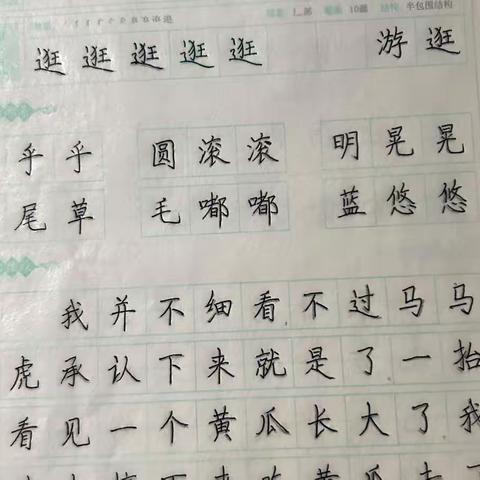 10画 结构 半包围结构
逛 逛 逛 逛 逛 游 逛
乎 乎 圆 滚 滚 明 晃 晃
尾 草 毛 嘟 嘟 蓝 悠 悠
我 并 不 细 看 不 过 马 马
虎 承 认 下 来 就 是 了 一 抬
看 见 一 个 黄 瓜 长 大 了 我
下 来 吃 黄 瓜 去 了